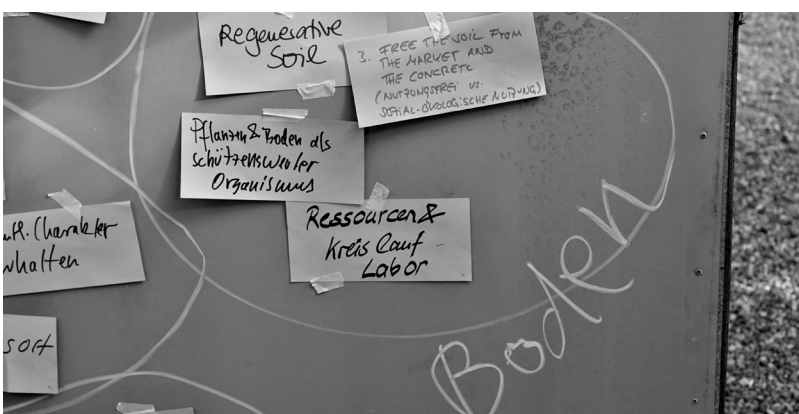 Regenerative
Soil
3. FREE THE SOIL FROM
THE MARKET AND
THE CONCRETE
(NUTZUNGSFREI VS.
SOZIAL-ÖKOLOGISCHE NUTZUNG)
Pflanzen & Boden als
schützenswerter
Organismus
Ressourcen &
Kreislauf-
Labor
Charakter
Boden